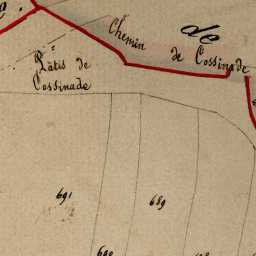 de
Chemin de Cossinade
Pâtis de
Cossinade
691
689